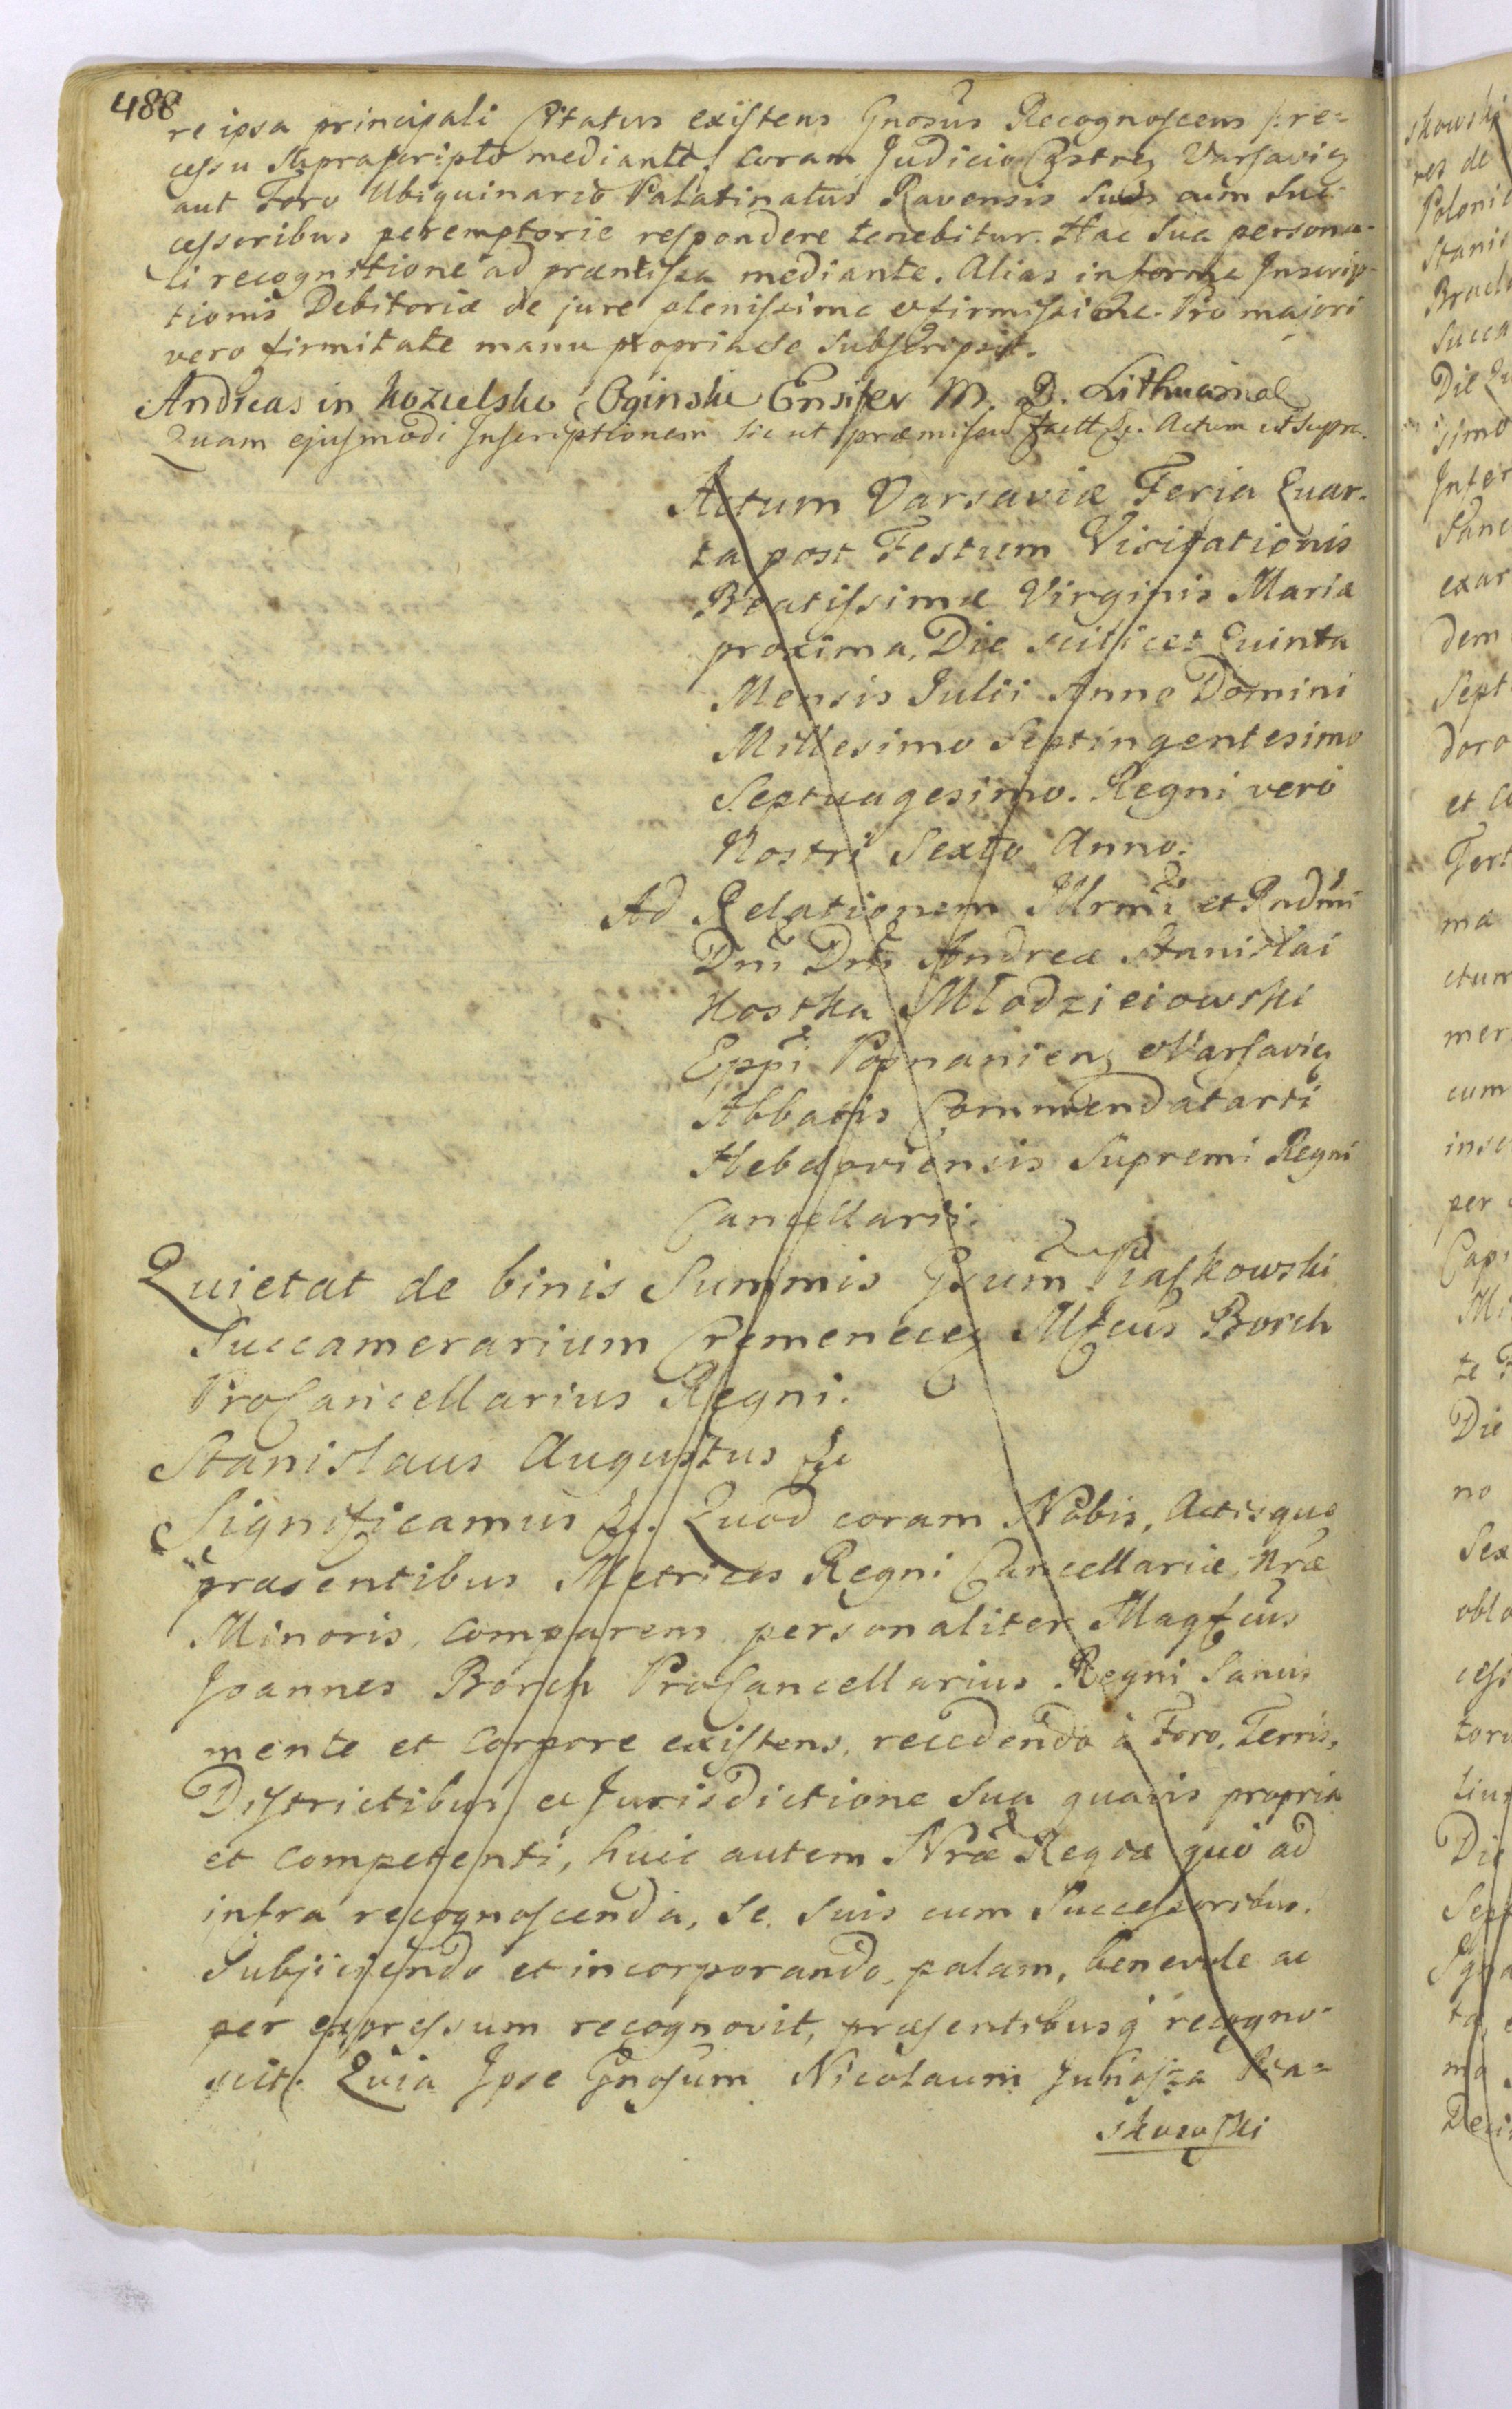 488
re ipsa principali Citatus existens Gnosus Recognoscens pre=
cessu supra scripto mediante, Coram Judicio Cstren Varsavien
aut Foro Ubiquinario Palatinatus Ravensis suis cum Suc
cessoribus peremptorie respondere tenebitur. Hac sua persona-
li recognitione ad præmissa mediante. Alias in forma Inscrip-
tionis Debitoriæ de jure plenissime et firmissime. Pro majori
vero firmitate manu propria se subscripsit.
Andreas in Kozielsko Oginski Ensifer M. D. Lithuaniae
Quam ejusmodi Inscriptionem sic ut præmissum facit &c. Actum ut supra.
Actum Varsaviæ Feria Quar-
ta post Festum Visitationis
Beatissimæ Virginis Mariæ
proxima, Die scilicet Quinta
Mensis Julii Anno Domini
Millesimo Septingentesimo
Septuagesimo. Regni verò
Nostri Sexto Anno.
Ad Relationem Illrmi et Rndmi
Dni Dni Andreæ Stanislai
Kostka Młodzieiowski
Eppi Posnanien et Varsavien
Abbatis Commendatarii
Hebdoviensis Supremi Regni
Cancellarii.
Quietat de binis Summis Gsum Piaskowski
Succamerarium Cremenecen Mfcus Borch
ProCancellarius Regni.
Stanislaus Augustus &c
Significamus &c. Quod coram Nobis, Actisque
præsentibus Metrices Regni Cancellariæ Nræ
Minoris, comparens personaliter Magfcus
Joannes Borch ProCancellarius Regni sanus
mente et corpore existens, recedendo à Foro, Terris,
Districtibus et Jurisdictione sua quavis propria
et competenti, huic autem Nræ Regiæ quò ad
infra recognoscenda, se suis cum Successoribus.
Subjiciendo et incorporando, palam, benevole ac
per expressum recognovit, præsentibusq recogno-
scit. Quia Ipse Gnosum Nicolaum Junosza Pia=
skowski
skowski
res de
Polonic
Stanis
Succa
simo
Inter
exar
dem
Sept
doro
ma
mer
cum
per
Capi
Die
no
Sex
oblo
Die